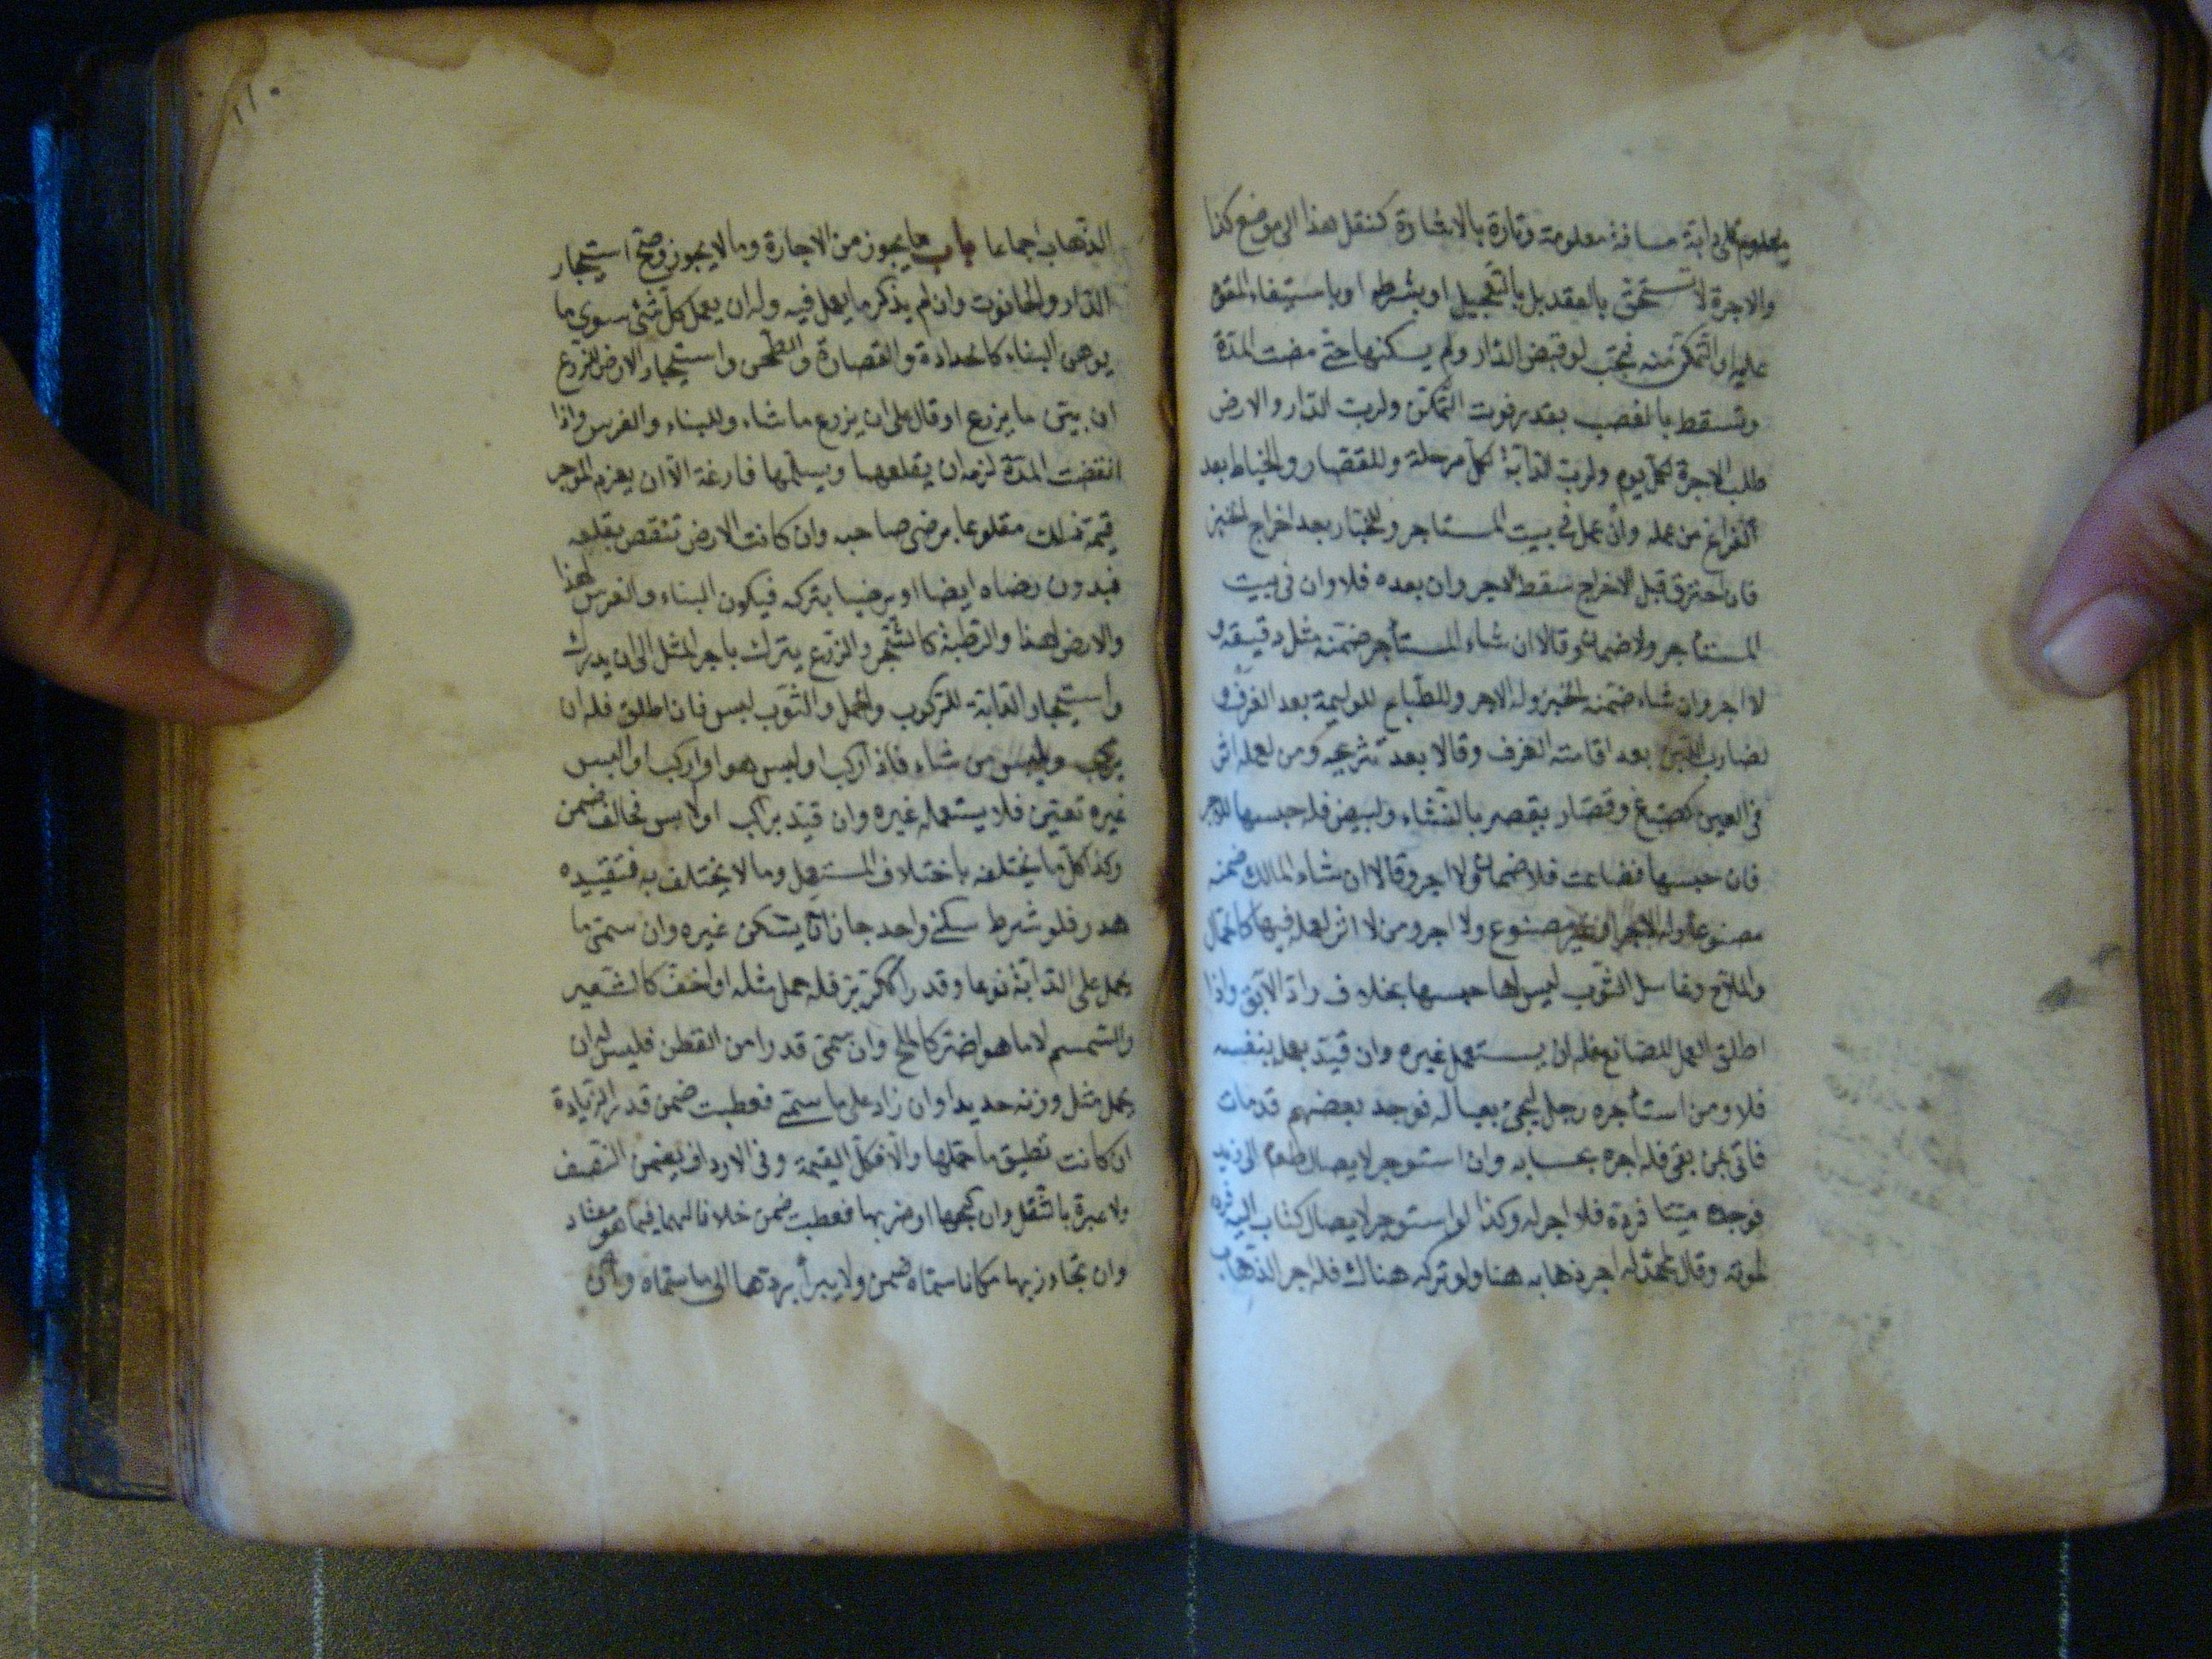 معلوم على دابة مسافة معلومة وتارة بالاشارة كنقل هذا الى موضع كذا
والاجرة لا تستحق بالعقد بل بالتعجيل او بشرطه او باستيفاء المعقود
عليه او التمكن منه فتجب لو قبض الدار ولم يسكنها حتى مضت المدة
وتسقط بالغصب بقدر فوت التمكن ولرب الدار والارض
طلب الاجرة لكل يوم ولرب الدابة لكل مرحلة وللقصار والخياط بعد
الفراغ من عمله وان عمل فى بيت المستاجر وللخباز بعد اخراج الخبز
فان احترق قبل الاخراج سقط الاجر وان بعده فلا وان فى بيت
المستأجر ولا ضمان وقالا ان شاء المستأجر ضمنه مثل دقيقه و
لا اجر وان شاء ضمنه الخبز وله الاجر وللطباخ للوليمة بعد الغرف و
لضارب اللبن بعد اقامته الغرف وقالا بعد تشريجه ومن لعمله اثر
فى العين كصباغ وقصار يقصر بالنشاء والبيض فله حبسها للاجر
فان حبسها فضاعت فلا ضمان ولا اجر وقالا ان شاء المالك ضمنه
مصنوعا وله الاجر او غير مصنوع ولا اجر ومن لا اثر لعمله فيها كالحمال
والملاح وغاسل الثوب ليس لها حبسها بخلاف راد الآبق واذا
اطلق العمل للصانع فله ان يستعمل غيره وان قيد بعمله بنفسه
فلا ومن استأجره رجل ليجئ بعياله فوجد بعضهم قد مات
فاتى بمن بقى فله اجره بحسابه وان استوجر لايصال طعام الى زيد
فوجده ميتا فرده فلا اجر له وكذا لو استوجر لايصال كتاب اليه فرده
لموته وقال محمد له اجر ذهابه هنا ولو تركه هناك فله اجر الذهاب
١١٠
الذهاب اجماعا باب ما يجوز من الاجارة وما لا يجوز وصح استيجار
الدار والحانوت وان لم يذكر ما يعمل فيه وله ان يعمل كل شئ سوى ما
يوهن البناء كالحدادة والقصارة والطحن واستيجار الارض للزرع
ان بين ما يزرع او قال على ان يزرع ما شاء وللبناء والغرس واذا
انقضت المدة لزمه ان يقلعهما ويسلمها فارغة الا ان يغرم الموجر
قيمة ذلك مقلوعا برضى صاحبه وان كانت الارض تنقص بقلعه
فبدون رضاه ايضا او يرضيا بتركه فيكون البناء والغرس لهذا
والارض لهذا والرطبة كالشجر والزرع يترك باجر المثل الى ان يدرك
واستيجار الدابة للركوب والحمل والثوب للبس فان اطلق فله ان
يركب ويلبس من شاء فاذا ركب او لبس هو او اركب او البس
غيره تعين فلا يستعمله غيره وان قيد براكب او لابس فخالف ضمن
وكذا كل ما يختلف باختلاف المستعمل وما لا يختلف به فتقييده
هدر فلو شرط سكنى واحد جاز ان يسكن غيره وان سمى ما
يحمل على الدابة نوعا وقدرا ككر بر فله حمل مثله او اخف كالشعير
والسمسم لا ما هو اضر كالملح وان سمى قدرا من القطن فليس له ان
يحمل مثل وزنه حديدا وان زاد على ما سمى فعطبت ضمن قدر الزيادة
ان كانت تطيق ما حملها والا فكل القيمة وفى الارداف يضمن النصف
ولا عبرة بالثقل وان كبحها او ضربها فعطبت ضمن خلافا لهما فيما هو معتاد
وان تجاوز بها مكانا سماه ضمن ولا يبرأ بردها الى ما سماه وان